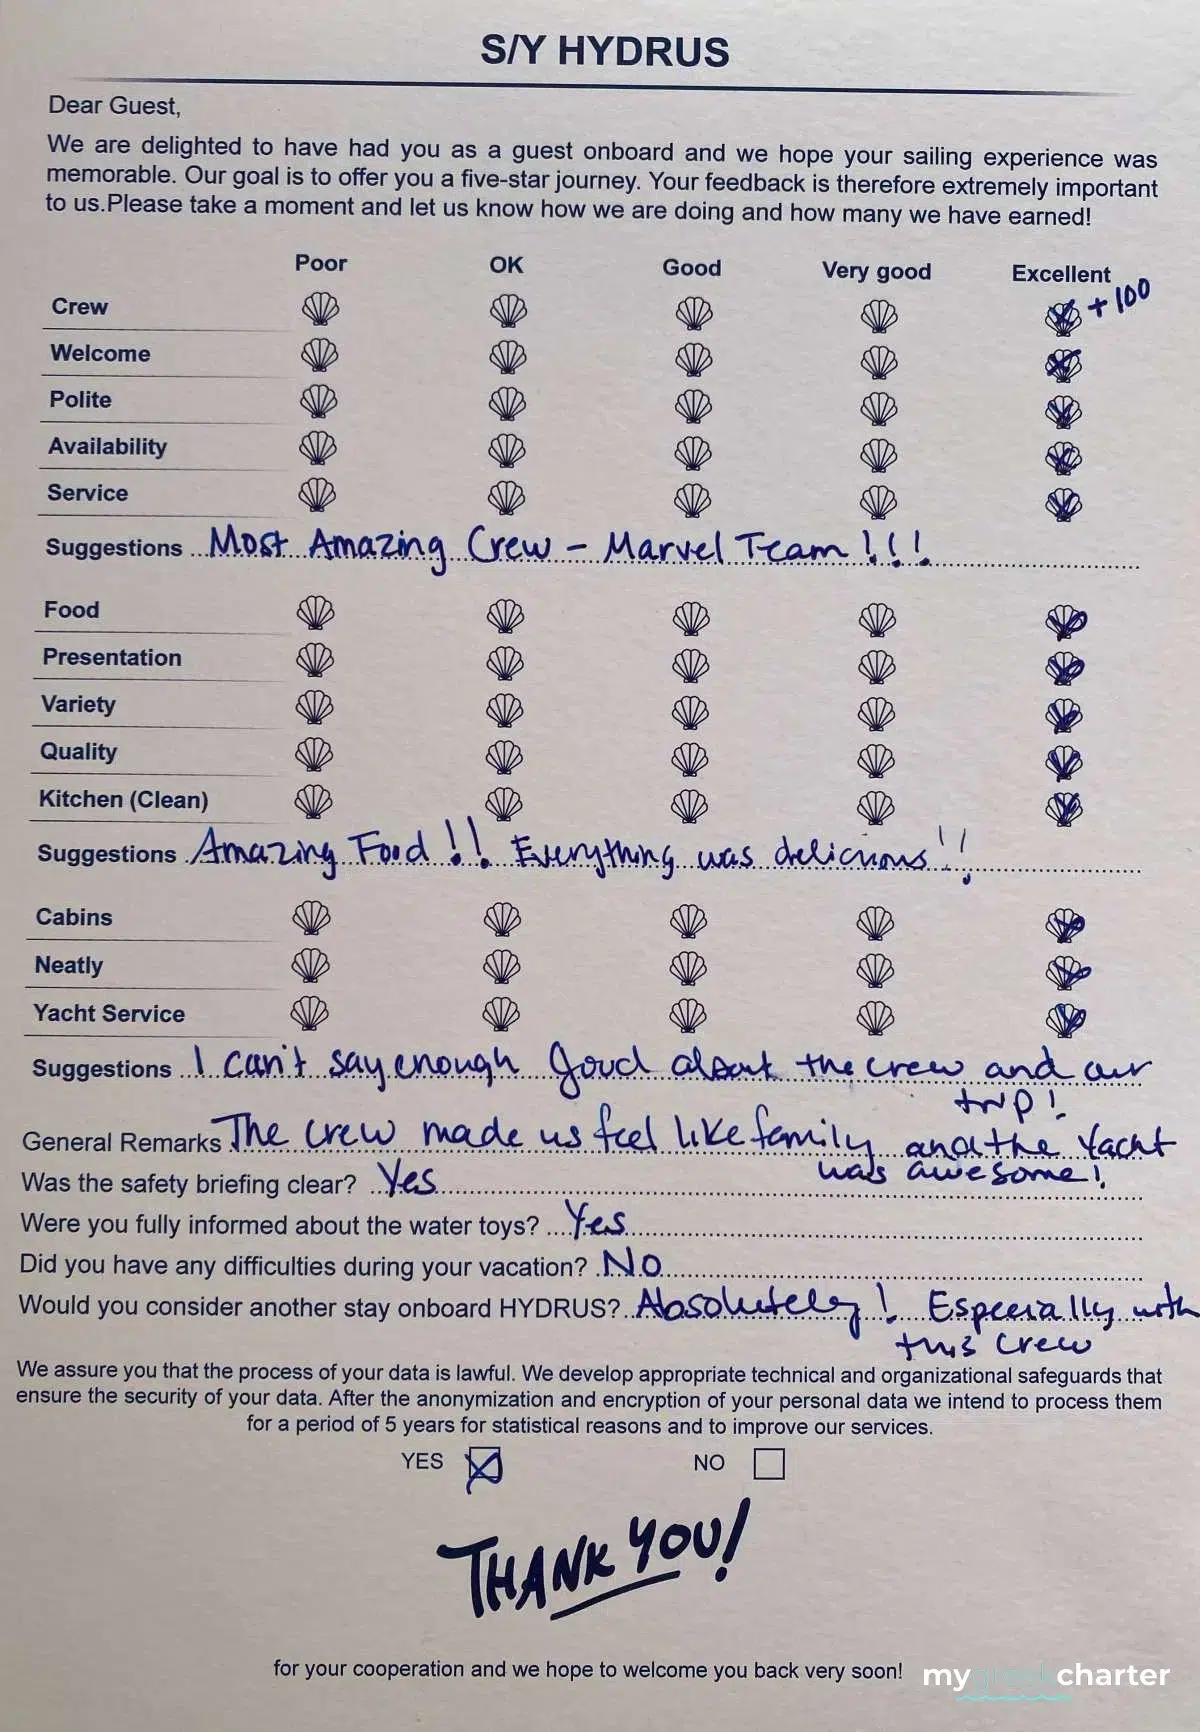 S/Y HYDRUS
Dear Guest,
We are delighted to have had you as a guest onboard and we hope your sailing experience was
memorable. Our goal is to offer you a five-star journey. Your feedback is therefore extremely important
to us.Please take a moment and let us know how we are doing and how many we have earned!
Poor OK Good Very good Excellent
Crew + 100
Welcome
Polite
Availability
Service
Suggestions Most Amazing Crew - Marvel Team!!!
Food
Presentation
Variety
Quality
Kitchen (Clean)
Suggestions Amazing Food!! Everything was delicious!!
Cabins
Neatly
Yacht Service
Suggestions I can't say enough good about the crew and our
trip!
General Remarks The crew made us feel like family and the Yacht
was awesome!
Was the safety briefing clear? Yes
Were you fully informed about the water toys? Yes
Did you have any difficulties during your vacation? No
Would you consider another stay onboard HYDRUS? Absolutely! Especially with
this crew
We assure you that the process of your data is lawful. We develop appropriate technical and organizational safeguards that
ensure the security of your data. After the anonymization and encryption of your personal data we intend to process them
for a period of 5 years for statistical reasons and to improve our services.
YES NO
THANK YOU!
for your cooperation and we hope to welcome you back very soon!
mygreekcharter